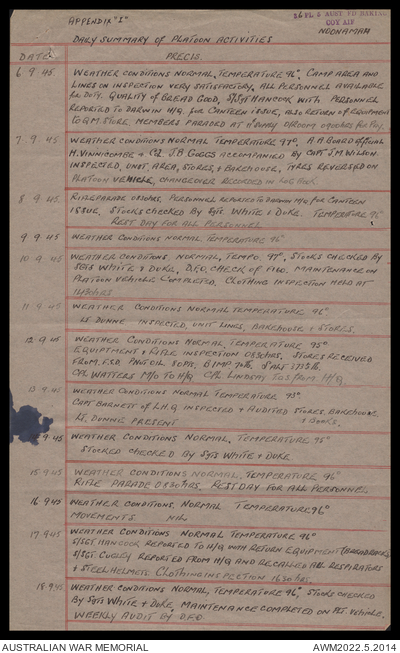 APPENDIX "I"
36 PL & AUST FD BAKING
COY AIF
NOONAMAH
DAILY SUMMARY OF PLATOON ACTIVITIES
DATE. PRECIS.
6 9. 45. WEATHER CONDITIONS NORMAL, TEMPERATURE 96°, CAMP AREA AND
LINES ON INSPECTION VERY SATISFACTORY, ALL PERSONNEL AVAILABLE
for DUTY. QUALITY OF BREAD GOOD, S/SGT HANCOCK WITH PERSONNEL
REPORTED TO DARWIN H/Q. for CANTEEN ISSUE, ALSO RETURN OF EQUIPMENT
TO QM STORE, MEMBERS PARADED AT for Pay.
7 9. 45 WEATHER CONDITIONS NORMAL TEMPERATURE 97°. A A BOARD Official
H. VINNICOMBE & CPL J.B GOGGS ACCOMPANIED BY CAPT J.M WILSON.
INSPECTED, UNIT, AREA, STORES, & BAKEHOUSE, TYRES REVERSED ON
PLATOON VEHICLE, CHANGEOVER RECORDED IN LOG BOOK.
8 9. 45 RIFLE PARADE 0830HRS, PERSONNEL REPORTED TO DARWIN H/Q for CANTEEN
ISSUE, STOCKS CHECKED BY SGTS WHITE & DUKE. TEMPERATURE 96°
REST DAY FOR ALL PERSONNEL
9 9 45 WEATHER CONDITIONS NORMAL TEMPERATURE 96°
10 9. 45 WEATHER CONDITIONS, NORMAL, TEMPO. 97°, STOCKS CHECKED BY
SGTS WHITE & DUKE, D.F.O. CHECK OF MAINTENANCE ON
PLATOON VEHICLE COMPLETED, CLOTHING INSPECTION HELD AT
HRS
11 9. 45 WEATHER CONDITIONS NORMAL TEMPERATURE 96°
LT. DUNNE INSPECTED, UNIT LINES, BAKEHOUSE & STORES.
12 9. 45 WEATHER CONDITIONS NORMAL, TEMPERATURE 95°
EQUIPTMENT & RIFLE INSPECTION 0830HRS, STORES RECEIVED
FROM, F.S.D. SALT
CPL WATTERS M/O TO H/Q CPL LINDSAY T.O.S. from, H/Q.
13 9. 45 WEATHER CONDITIONS NORMAL TEMPERATURE 95°
CAPT BARNETT OF L.H.Q INSPECTED & AUDITED STORES, BAKEHOUSE
LT, DUNNE PRESENT & BOOKS.
9 45 WEATHER CONDITIONS NORMAL, TEMPERATURE 95°
STOCKED CHECKED BY SGTS WHITE & DUKE
15 9. 45 WEATHER CONDITIONS NORMAL, TEMPERATURE 96°
RIFLE PARADE 0830HRS. REST DAY FOR ALL PERSONNEL
16 9. 45 WEATHER CONDITIONS, NORMAL TEMPERATURE 96°
MOVEMENTS. NIL.
17 9. 45 WEATHER CONDITIONS NORMAL TEMPERATURE 96°
S/SGT HANCOCK REPORTED TO H/Q WITH RETURN EQUIPMENT
S/SGT. CURLEY REPORTED FROM H/Q AND RECALLED ALL RESPIRATORS
& STEEL HELMETS. CLOTHING INSPECTION 1630HRS.
18 9. 45 WEATHER CONDITIONS NORMAL, TEMPERATURE 96°, STOCKS CHECKED
BY SGTS WHITE & DUKE, MAINTENANCE COMPLETED ON VEHICLE.
WEEKLY AUDIT BY D.F.O
AUSTRALIAN WAR MEMORIAL AWM2022.5.2014